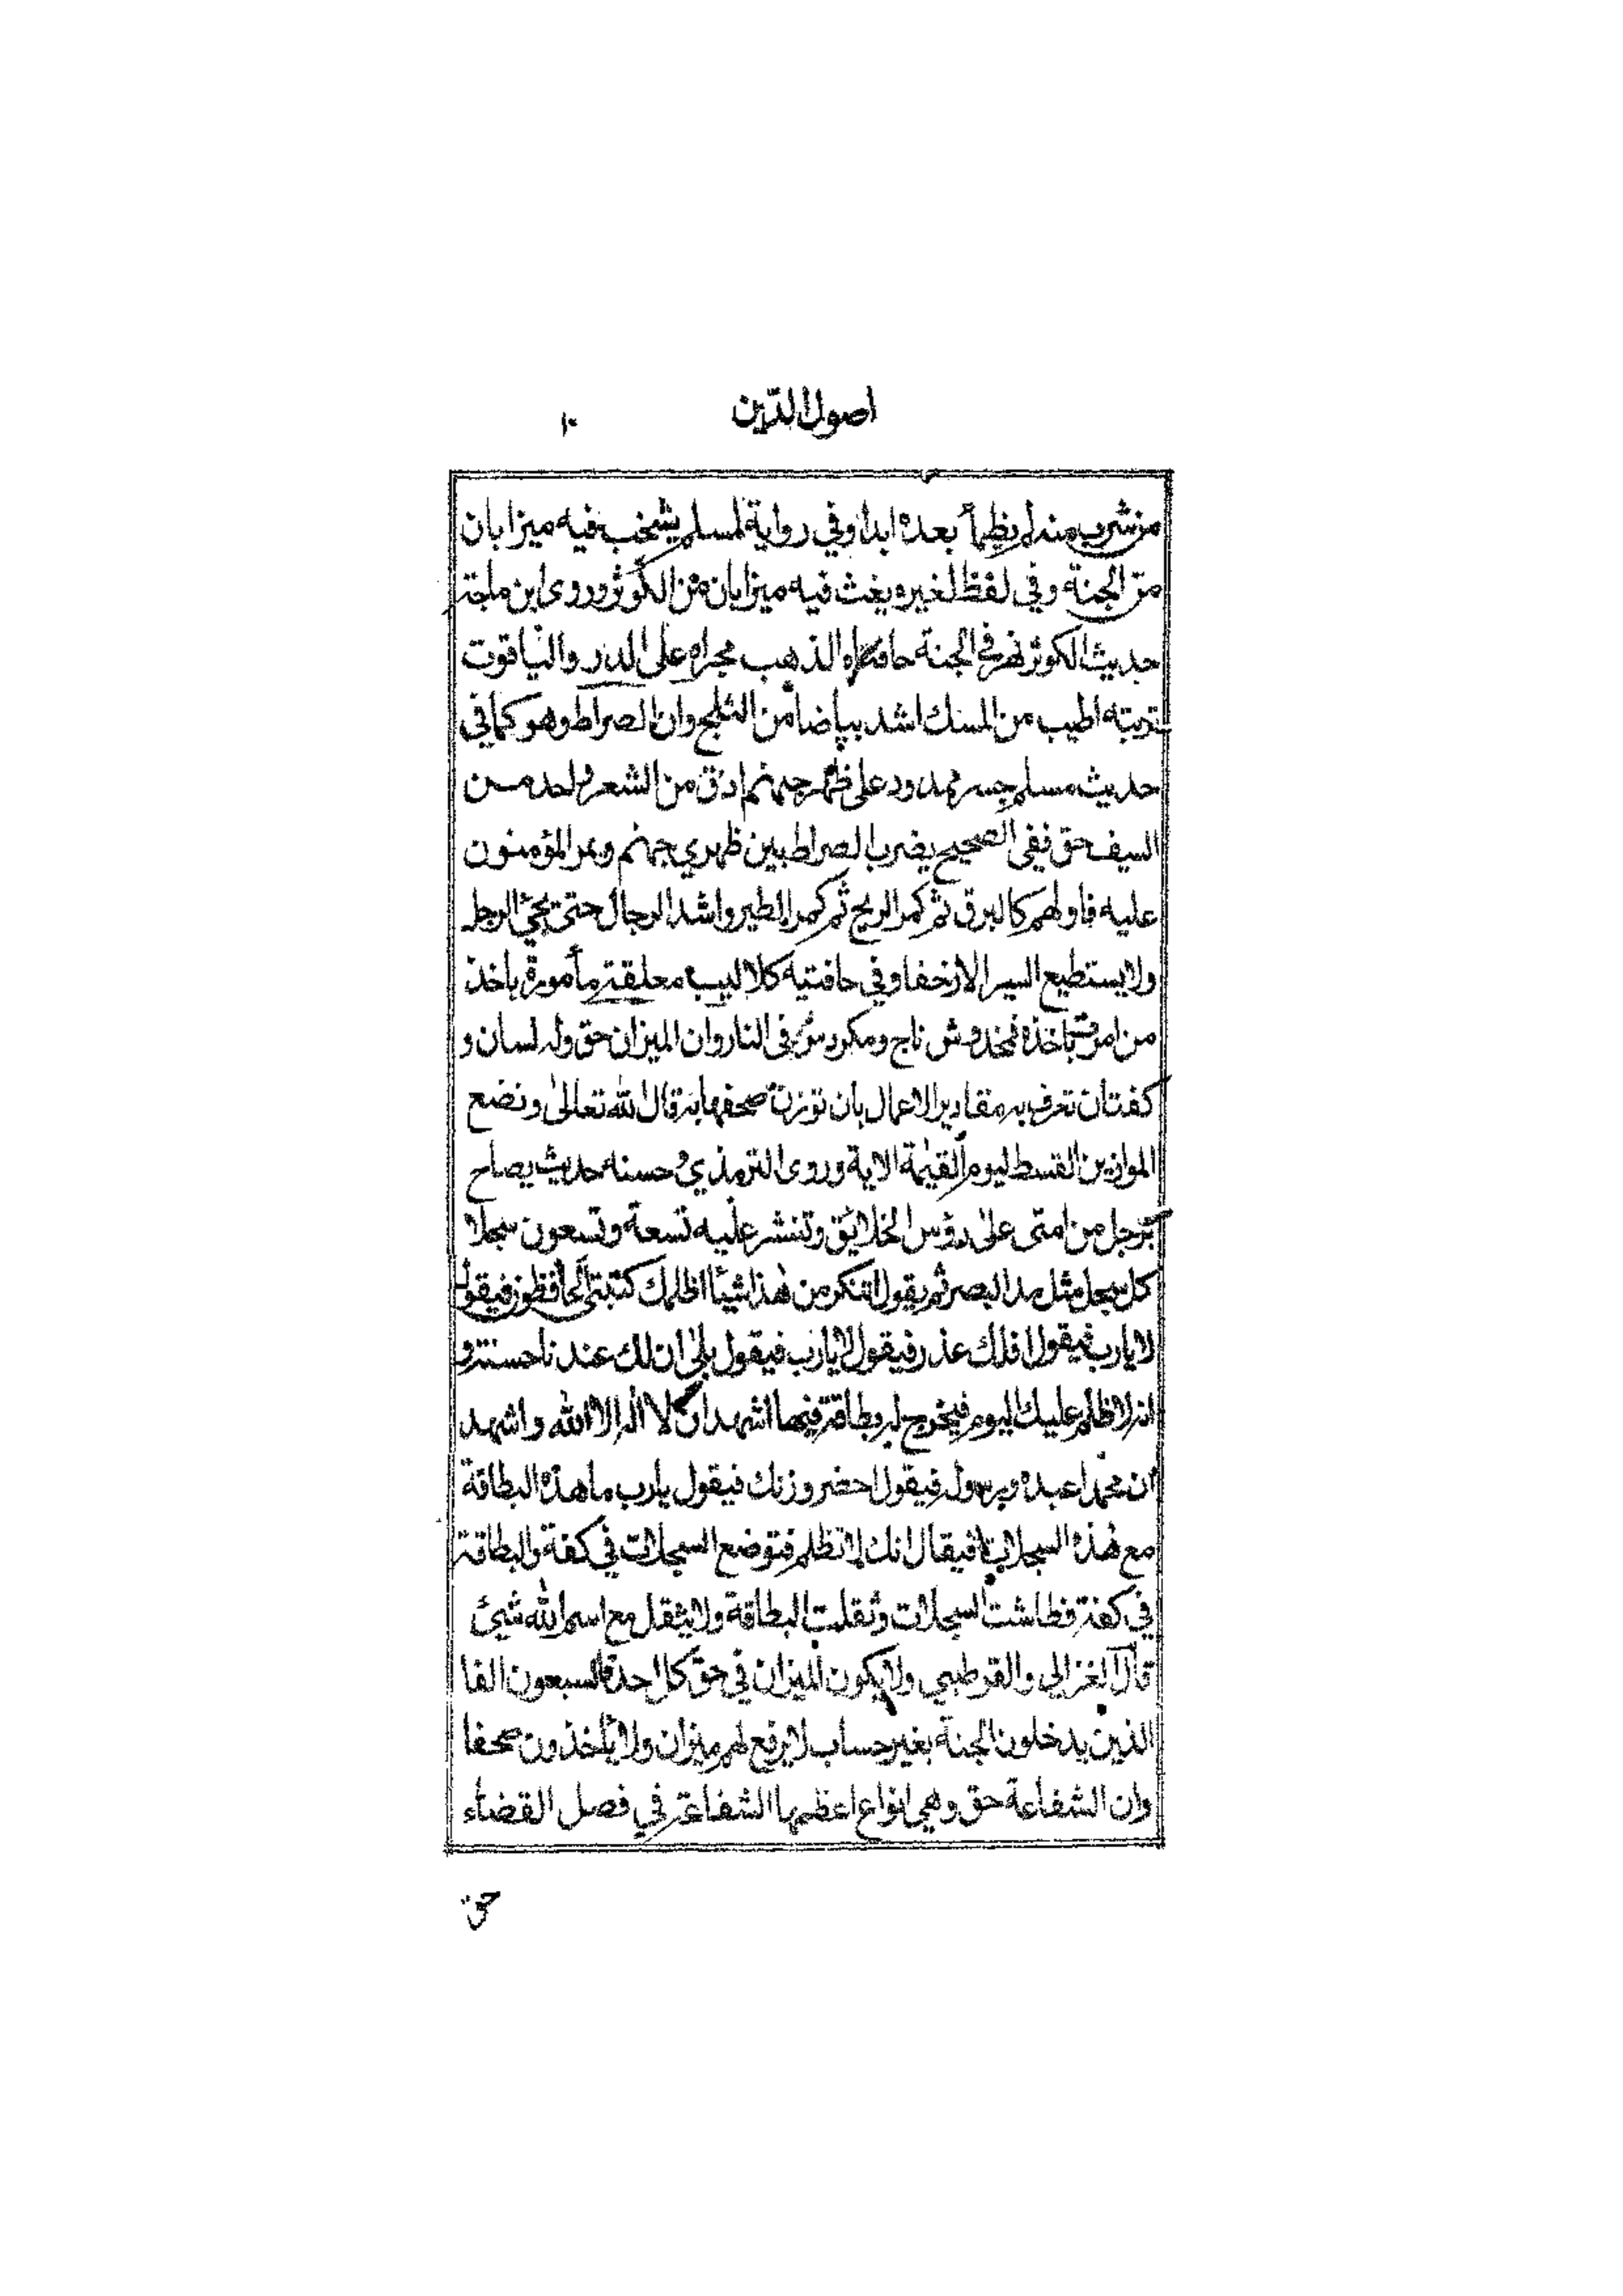 اصول الدّين ١٠
من شرب منه لم يظمأ بعده ابدا وفي رواية لمسلم يشخب فيه ميزابان
من الجنة وفي لفظ لغيره يغث فيه ميزابان من الكوثر وروى ابن ماجة
حديث الكوثر نهر في الجنة حافتاه الذهب مجراه على الدر والياقوت
تربته اطيب من المسك اشد بياضا من الثلج وان الصراط وهو كما في
حديث مسلم جسر ممدود على ظهر جهنم ادق من الشعر واحد مــن
السيف حق ففى الصحيح يضرب الصراط بين ظهري جهنم ويمر المؤمنون
عليه فاولهم كالبرق ثم كمر الريح ثم كمر الطير واشد الرجال حتى يجيئ الرجل
ولا يستطيع السير الا زحفا وفي حافتيه كلاليب معلقة مأمورة باخذ
من امرت باخذه فمخدوش ناج ومكردس فى النار وان الميزان حق وله لسان و
كفتان تعرف به مقادير الاعمال بان توزن صحفها به قال الله تعالىٰ ونضع
الموازين القسط ليوم القيٰمة الاية وروى الترمذي وحسنه حديث يصاح
برجل من امتى علىٰ رؤس الخلائق وتنشر عليه تسعة وتسعون سجلا
كل سجل مثل مد البصر ثم يقول اتنكر من هٰذا شيئا اظلمك كتبتى الحافظون فيقول
لا يارب فيقول افلك عذر فيقول لا يارب فيقول بلىٰ ان لك عندنا حسنة و
انه لا ظلم عليك اليوم فيخرج له بطاقة فيها اشهد ان لا اله الا الله واشهد
ان محمدا عبده ورسوله فيقول احضر وزنك فيقول يارب ما هذه البطاقة
مع هٰذه السجلات فيقال انك لا تظلم فتوضع السجلات في كفة والبطاقة
في كفة فطاشت السجلات وثقلت البطاقة ولا يثقل مع اسم الله شيئ
قال الغزالي والقرطبي ولا يكون الميزان في حق كل احد فالسبعون الفا
الذين يدخلون الجنة بغير حساب لا يرفع لهم ميزان ولا يأخذون صحفا
وان الشفاعة حق وهي انواع اعظمها الشفاعة في فصل القضاء
حق